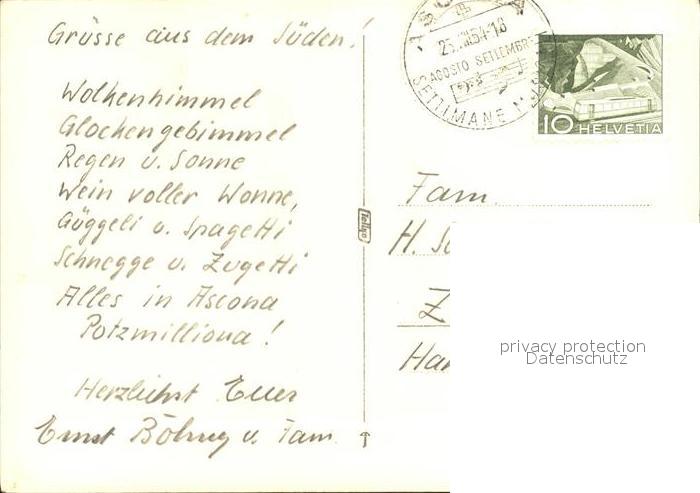 Grüsse aus dem Süden!
Wolkenhimmel
Glockengebimmel
Regen u. Sonne
Wein voller Wonne,
Güggeli u. Spagetti
Schnegge u. Zugetti
Alles in Ascona
Potzmilliona!
Herzlichst Euer
Ernst u. Fam.
AGOSTO SETTEMBRE
SETTIMANE
10 HELVETIA
Fam.
H.
Z
privacy protection
Datenschutz